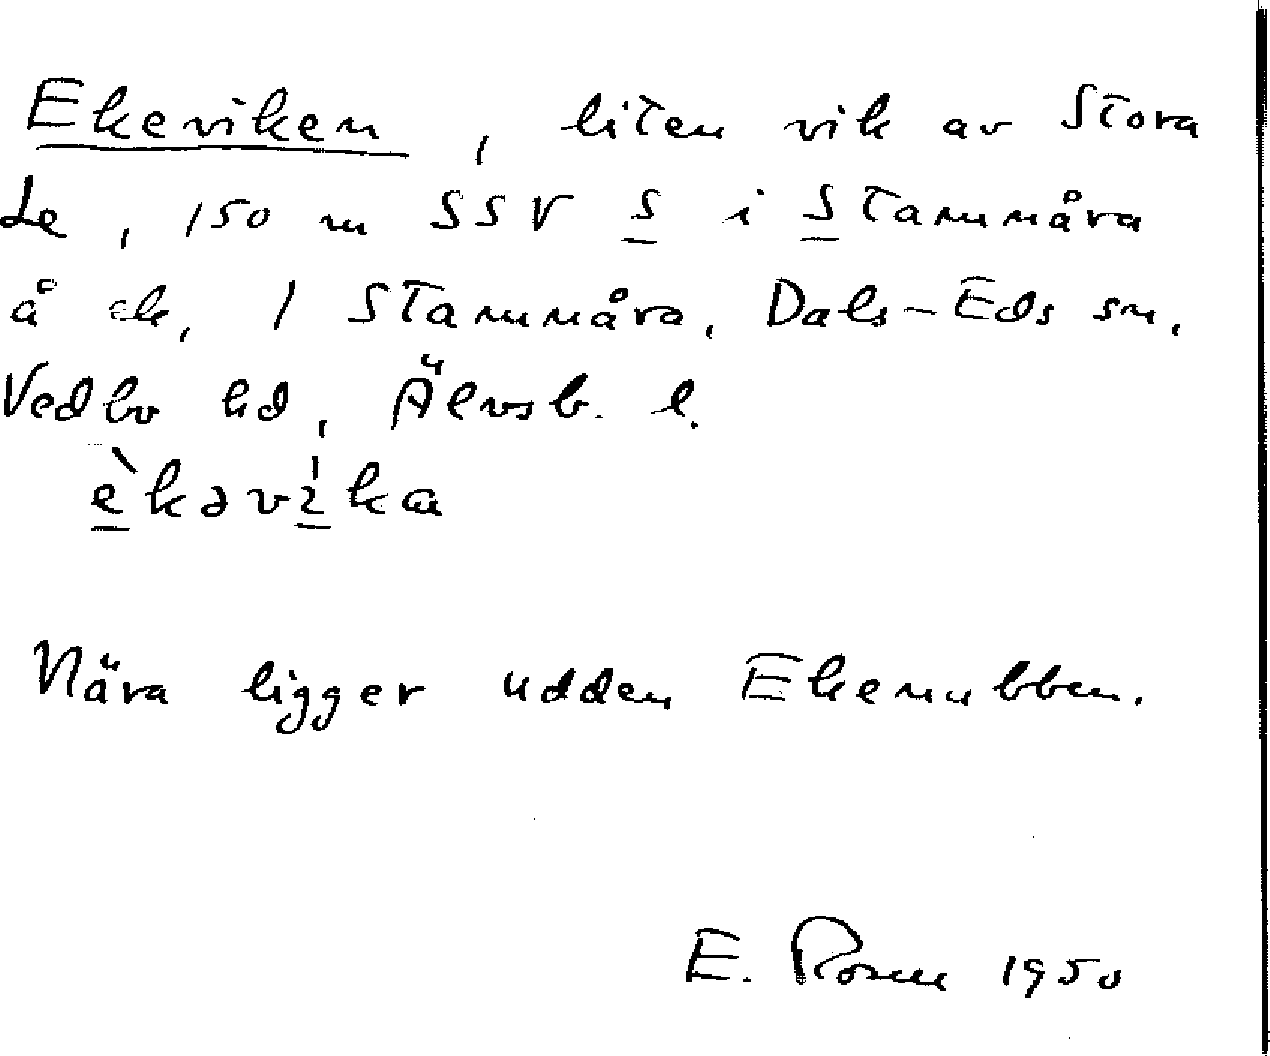 Ekeviken, liten vik av Stora
Le, 150 m SSV S i Stammåra
å ek, / Stammåra, Dals-Eds sn,
Vedbo hd, Älvsb. l.
èkəvìka
Nära ligger udden Ekenubben.
E. Rosen 1950